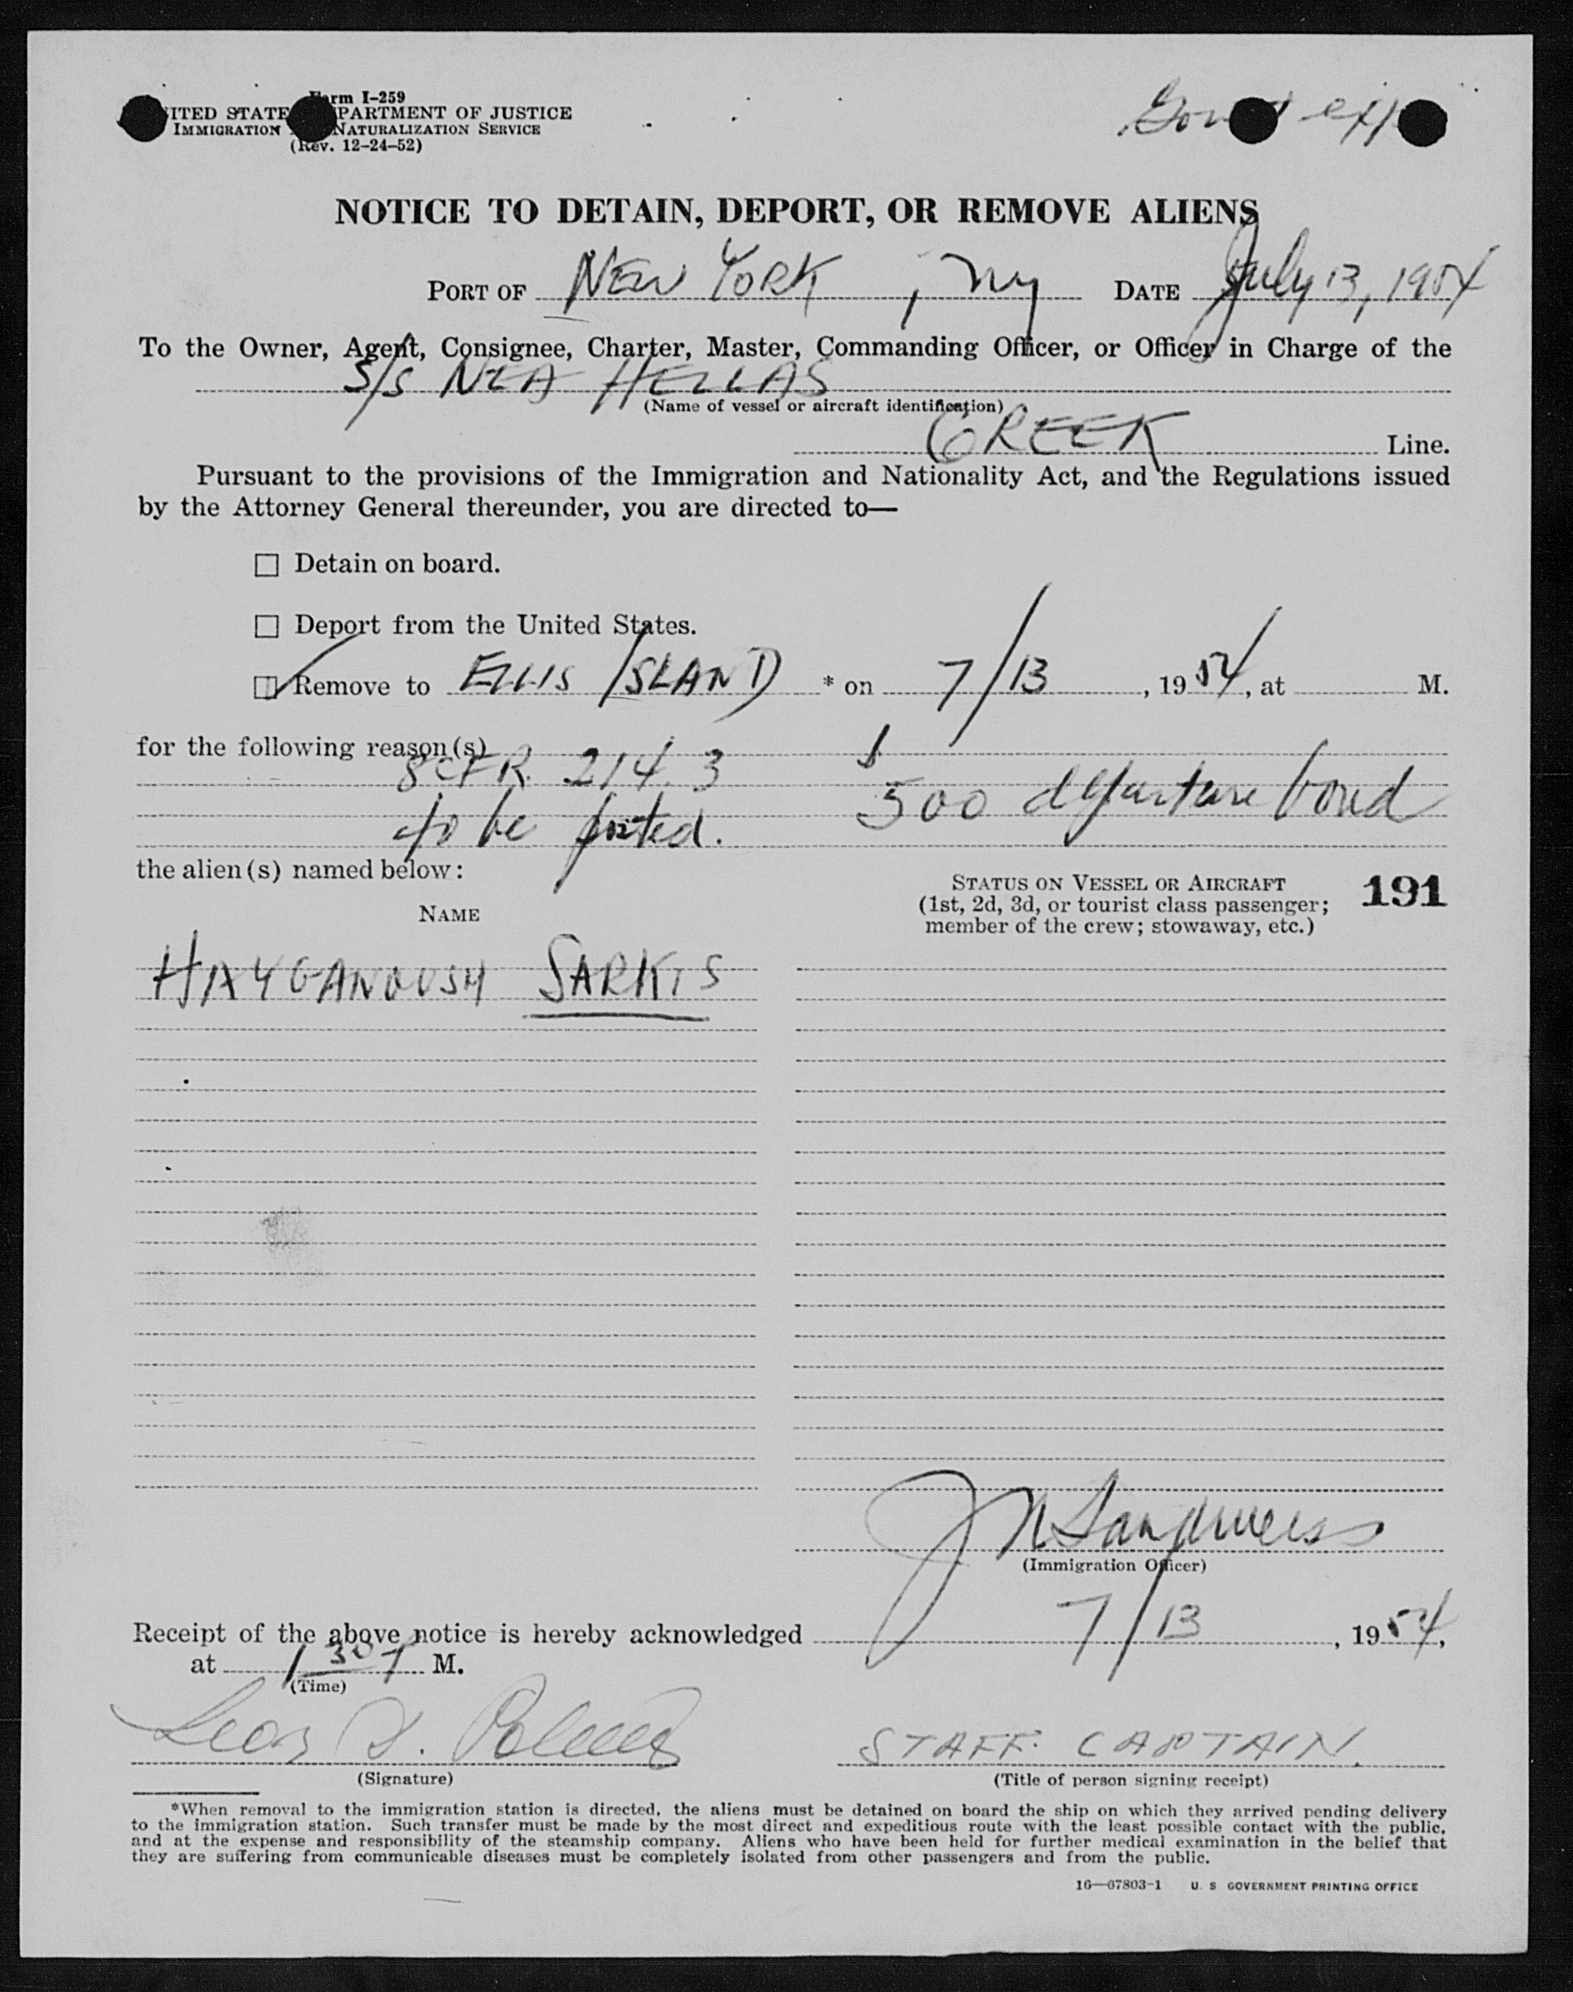 Form I-259
UNITED STATES DEPARTMENT OF JUSTICE
IMMIGRATION AND NATURALIZATION SERVICE
(Rev. 12-24-52)
NOTICE TO DETAIN, DEPORT, OR REMOVE ALIENS
PORT OF NEW YORK, NY DATE July 13, 1954
To the Owner, Agent, Consignee, Charter, Master, Commanding Officer, or Officer in Charge of the
S/S NEA HELLAS
(Name of vessel or aircraft identification)
GREEK Line.
Pursuant to the provisions of the Immigration and Nationality Act, and the Regulations issued
by the Attorney General thereunder, you are directed to—
Detain on board.
Deport from the United States.
Remove to ELLIS ISLAND * on 7/13, 1954, at M.
for the following reason(s)
8 CFR. 214.3 $500 departure bond
to be posted.
the alien(s) named below:
NAME
STATUS ON VESSEL OR AIRCRAFT
(1st, 2d, 3d, or tourist class passenger;
member of the crew; stowaway, etc.)
191
HAYGANOUSH SARKIS
(Immigration Officer)
Receipt of the above notice is hereby acknowledged 7/13, 1954,
at 1 30 P M.
(Time)
STAFF CAPTAIN.
(Signature)
(Title of person signing receipt)
*When removal to the immigration station is directed, the aliens must be detained on board the ship on which they arrived pending delivery
to the immigration station. Such transfer must be made by the most direct and expeditious route with the least possible contact with the public,
and at the expense and responsibility of the steamship company. Aliens who have been held for further medical examination in the belief that
they are suffering from communicable diseases must be completely isolated from other passengers and from the public.
16—67803-1 U. S. GOVERNMENT PRINTING OFFICE